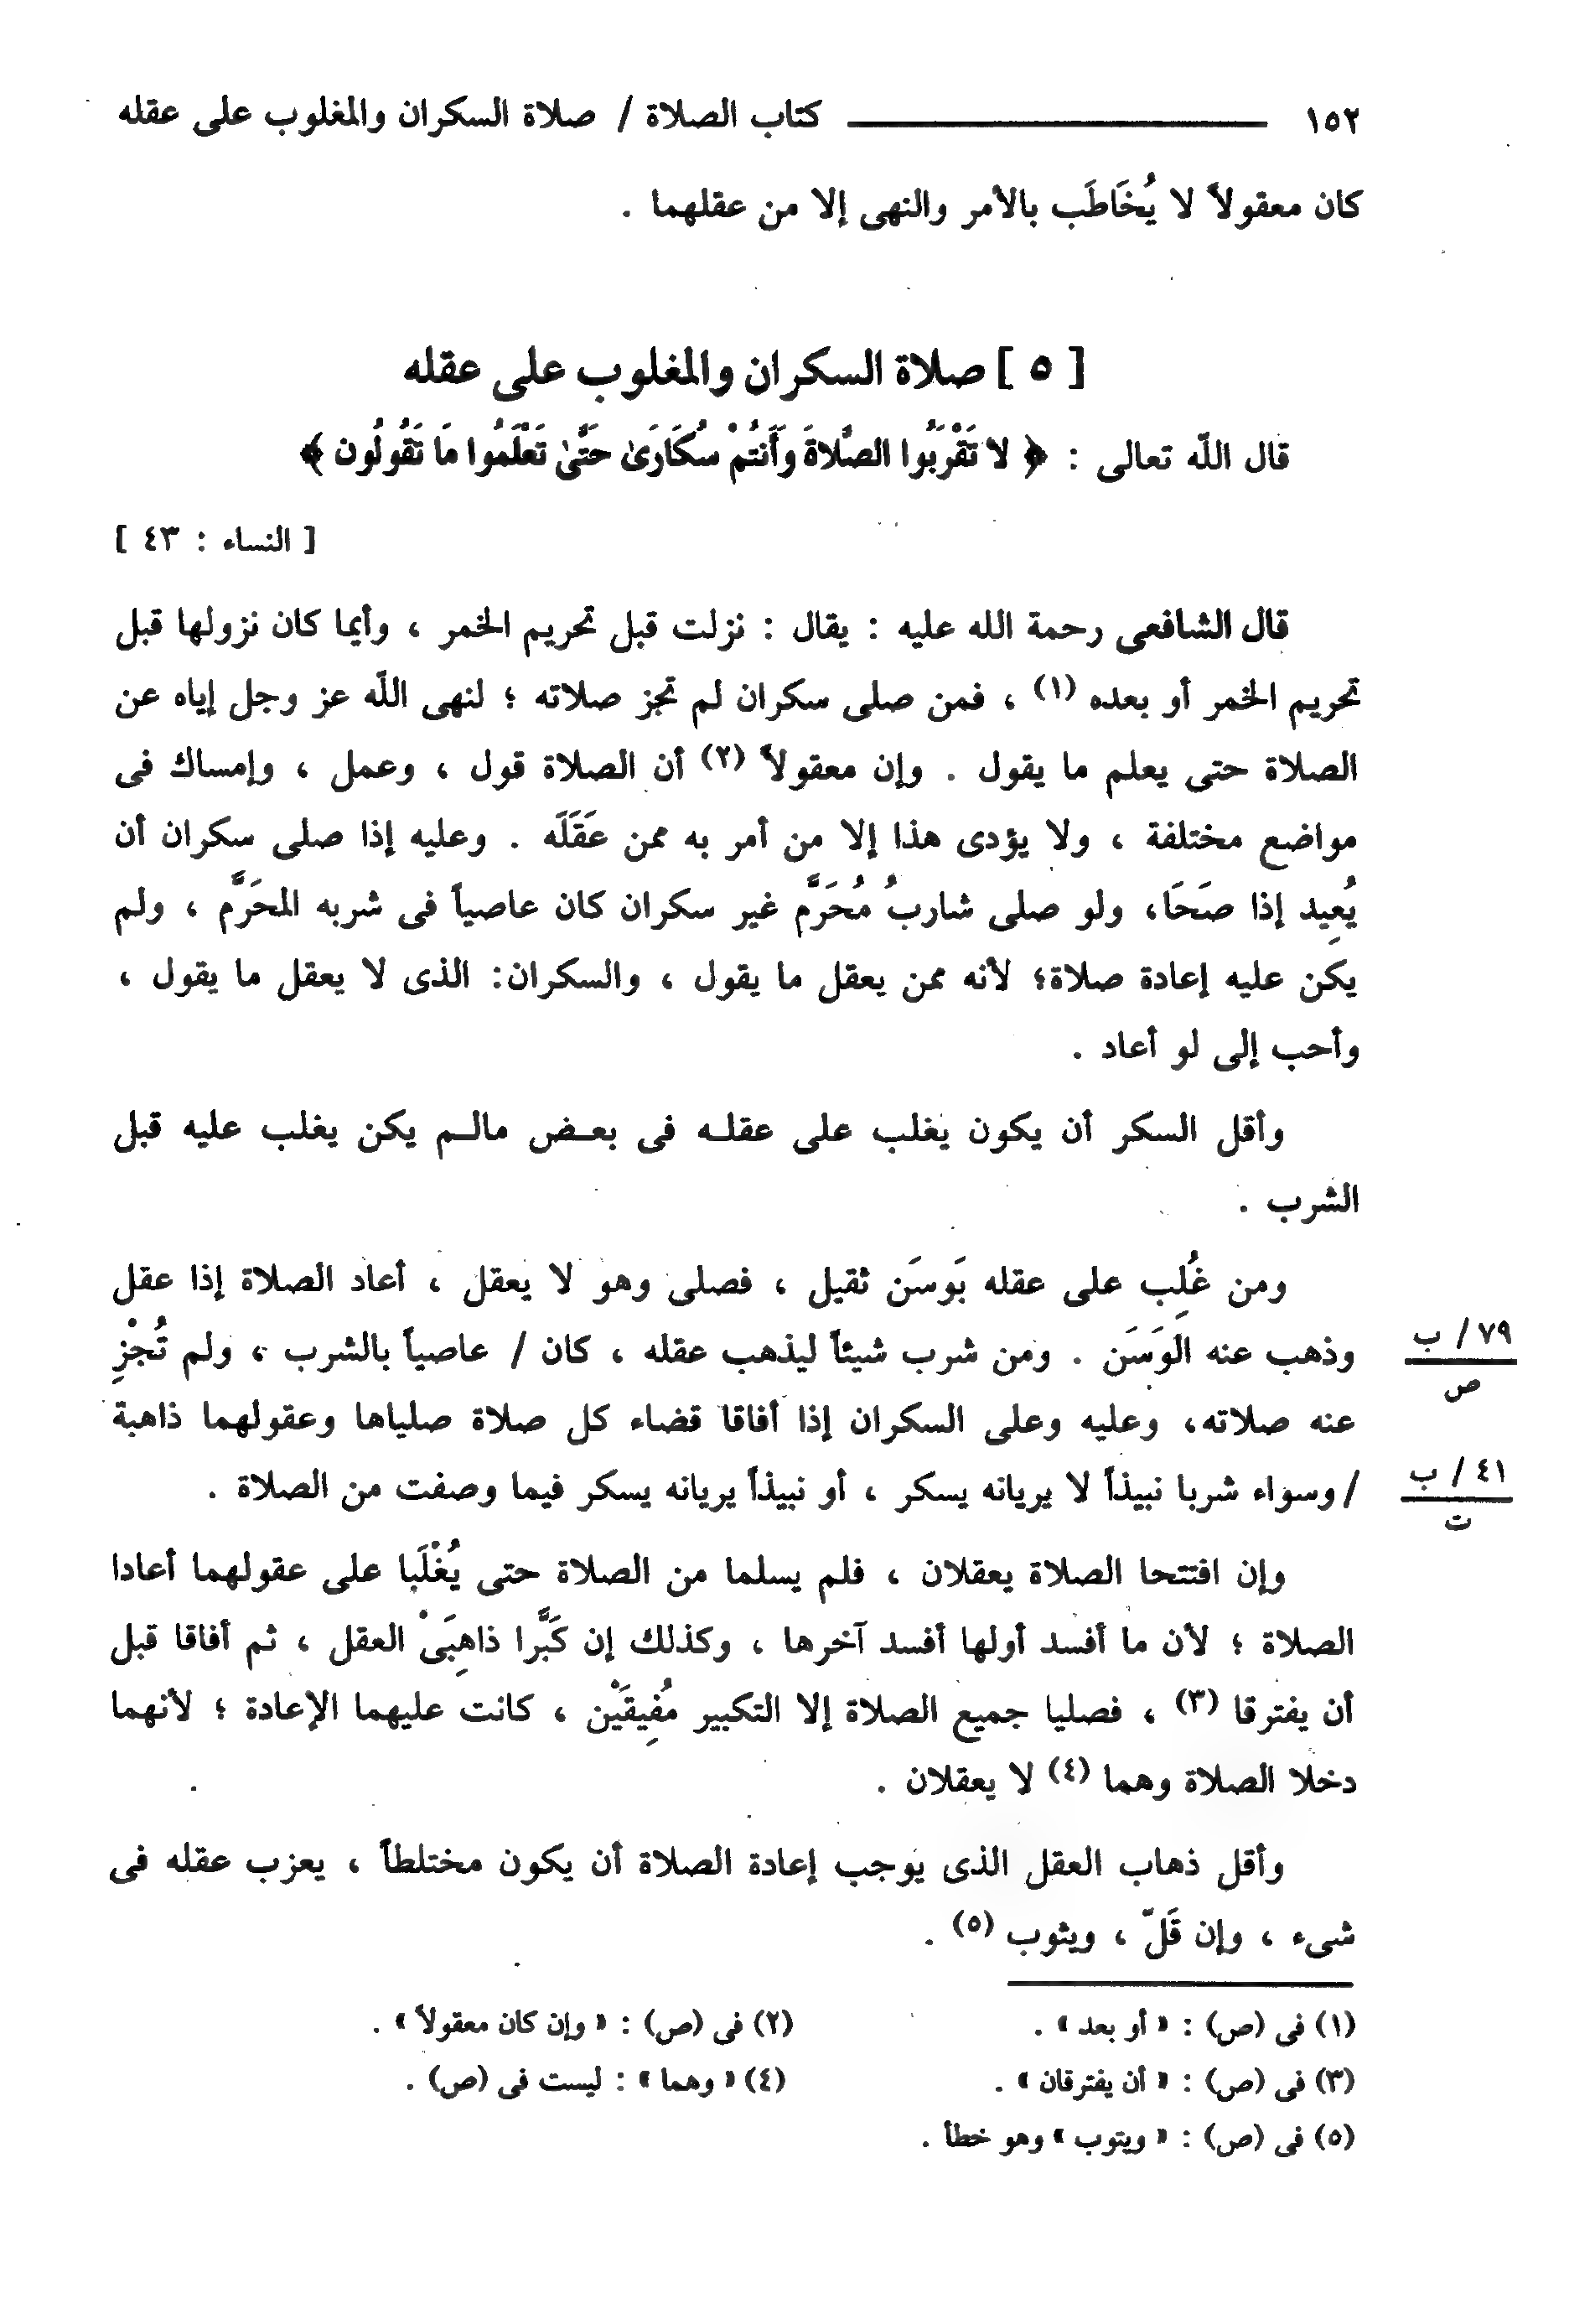 ١٥٢ كتاب الصلاة / صلاة السكران والمغلوب على عقله
كان معقولاً لا يُخَاطَب بالأمر والنهى إلا من عقلهما .
[ ٥ ] صلاة السكران والمغلوب على عقله
قال اللّه تعالى : ﴿ لا تَقْرَبُوا الصَّلاةَ وَأَنتُمْ سُكَارَىٰ حَتَّىٰ تَعْلَمُوا مَا تَقُولُون ﴾
[ النساء : ٤٣ ]
قال الشافعى رحمة الله عليه : يقال : نزلت قبل تحريم الخمر ، وأيما كان نزولها قبل
تحريم الخمر أو بعده (١) ، فمن صلى سكران لم تجز صلاته ؛ لنهى اللّه عز وجل إياه عن
الصلاة حتى يعلم ما يقول . وإن معقولاً (٢) أن الصلاة قول ، وعمل ، وإمساك فى
مواضع مختلفة ، ولا يؤدى هذا إلا من أمر به ممن عَقَلَه . وعليه إذا صلى سكران أن
يُعِيد إذا صَحَا، ولو صلى شاربُ مُحَرَّم غير سكران كان عاصياً فى شربه المحَرَّم ، ولم
يكن عليه إعادة صلاة؛ لأنه ممن يعقل ما يقول ، والسكران: الذى لا يعقل ما يقول ،
وأحب إلى لو أعاد .
وأقل السكر أن يكون يغلب على عقلـه فى بعـض مالـم يكن يغلب عليه قبل
الشرب .
ومن غُلِب على عقله بَوسَن ثقيل ، فصلى وهو لا يعقل ، أعاد الصلاة إذا عقل
وذهب عنه الوَسَن . ومن شرب شيئاً ليذهب عقله ، كان / عاصياً بالشرب ، ولم تُجْزِ
٧٩/ ب
ص
عنه صلاته، وعليه وعلى السكران إذا أفاقا قضاء كل صلاة صلياها وعقولهما ذاهبة
/ وسواء شربا نبيذاً لا يريانه يسكر ، أو نبيذاً يريانه يسكر فيما وصفت من الصلاة .
٤١ / ب
ت
وإن افتتحا الصلاة يعقلان ، فلم يسلما من الصلاة حتى يُغْلَبا على عقولهما أعادا
الصلاة ؛ لأن ما أفسد أولها أفسد آخرها ، وكذلك إن كَبَّرا ذاهِبَىْ العقل ، ثم أفاقا قبل
أن يفترقا (٣) ، فصليا جميع الصلاة إلا التكبير مُفِيقَيْن ، كانت عليهما الإعادة ؛ لأنهما
دخلا الصلاة وهما (٤) لا يعقلان .
وأقل ذهاب العقل الذى يوجب إعادة الصلاة أن يكون مختلطاً ، يعزب عقله فى
شىء ، وإن قَلّ ، ويثوب (٥) .
(١) فى (ص) : « أو بعد » . (٢) فى (ص) : « وإن كان معقولاً » .
(٣) فى (ص) : « أن يفترقان » . (٤) « وهما » : ليست فى (ص) .
(٥) فى (ص) : « ويتوب » وهو خطأ .